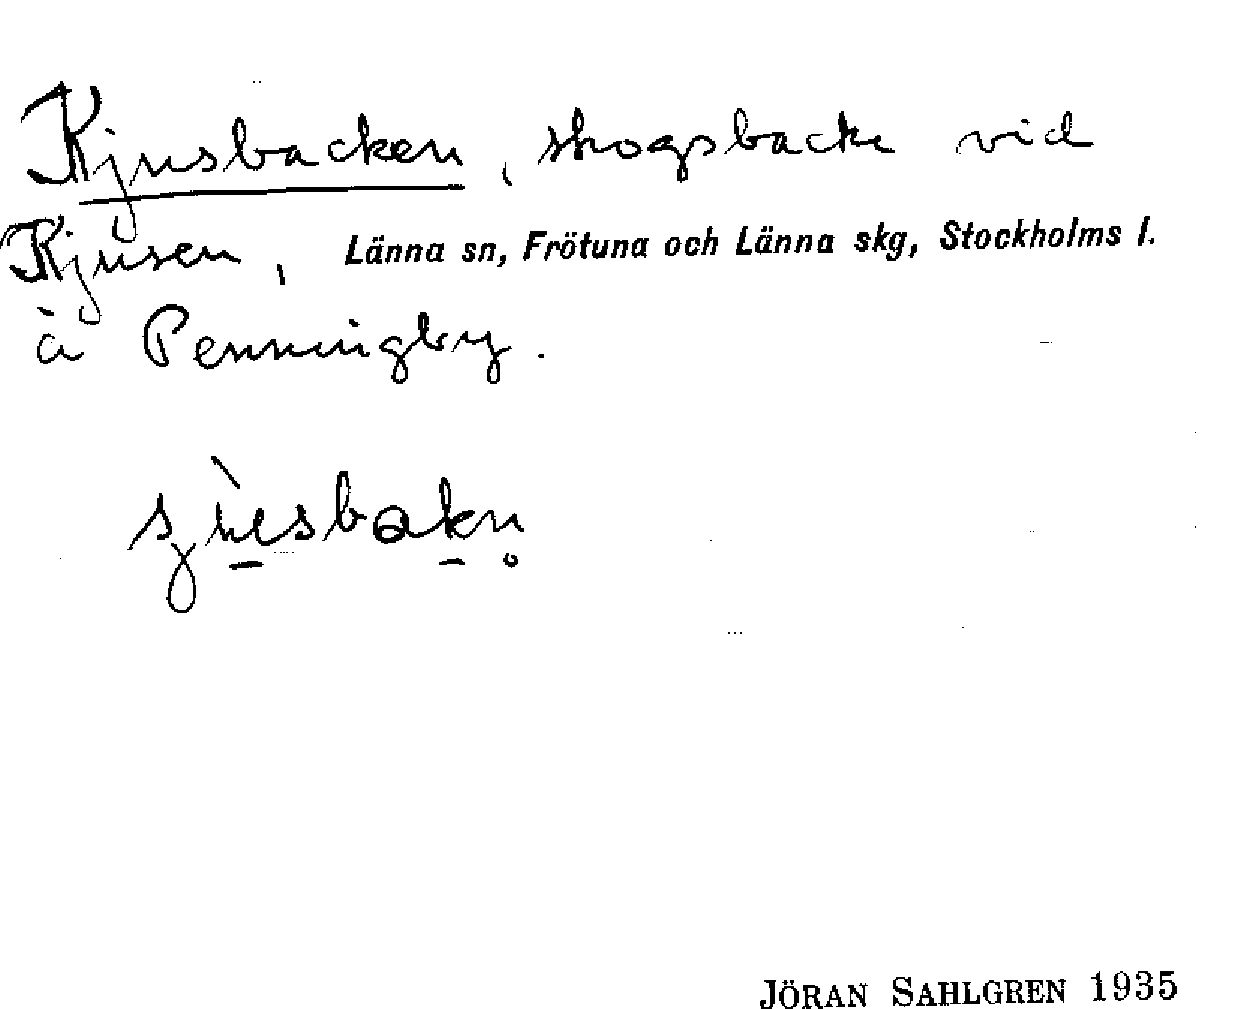 Kjusbacken, skogsbacke vid
Kjusen, Länna sn, Frötuna och Länna skg, Stockholms l.
à Penningby.
JÖRAN SAHLGREN 1935